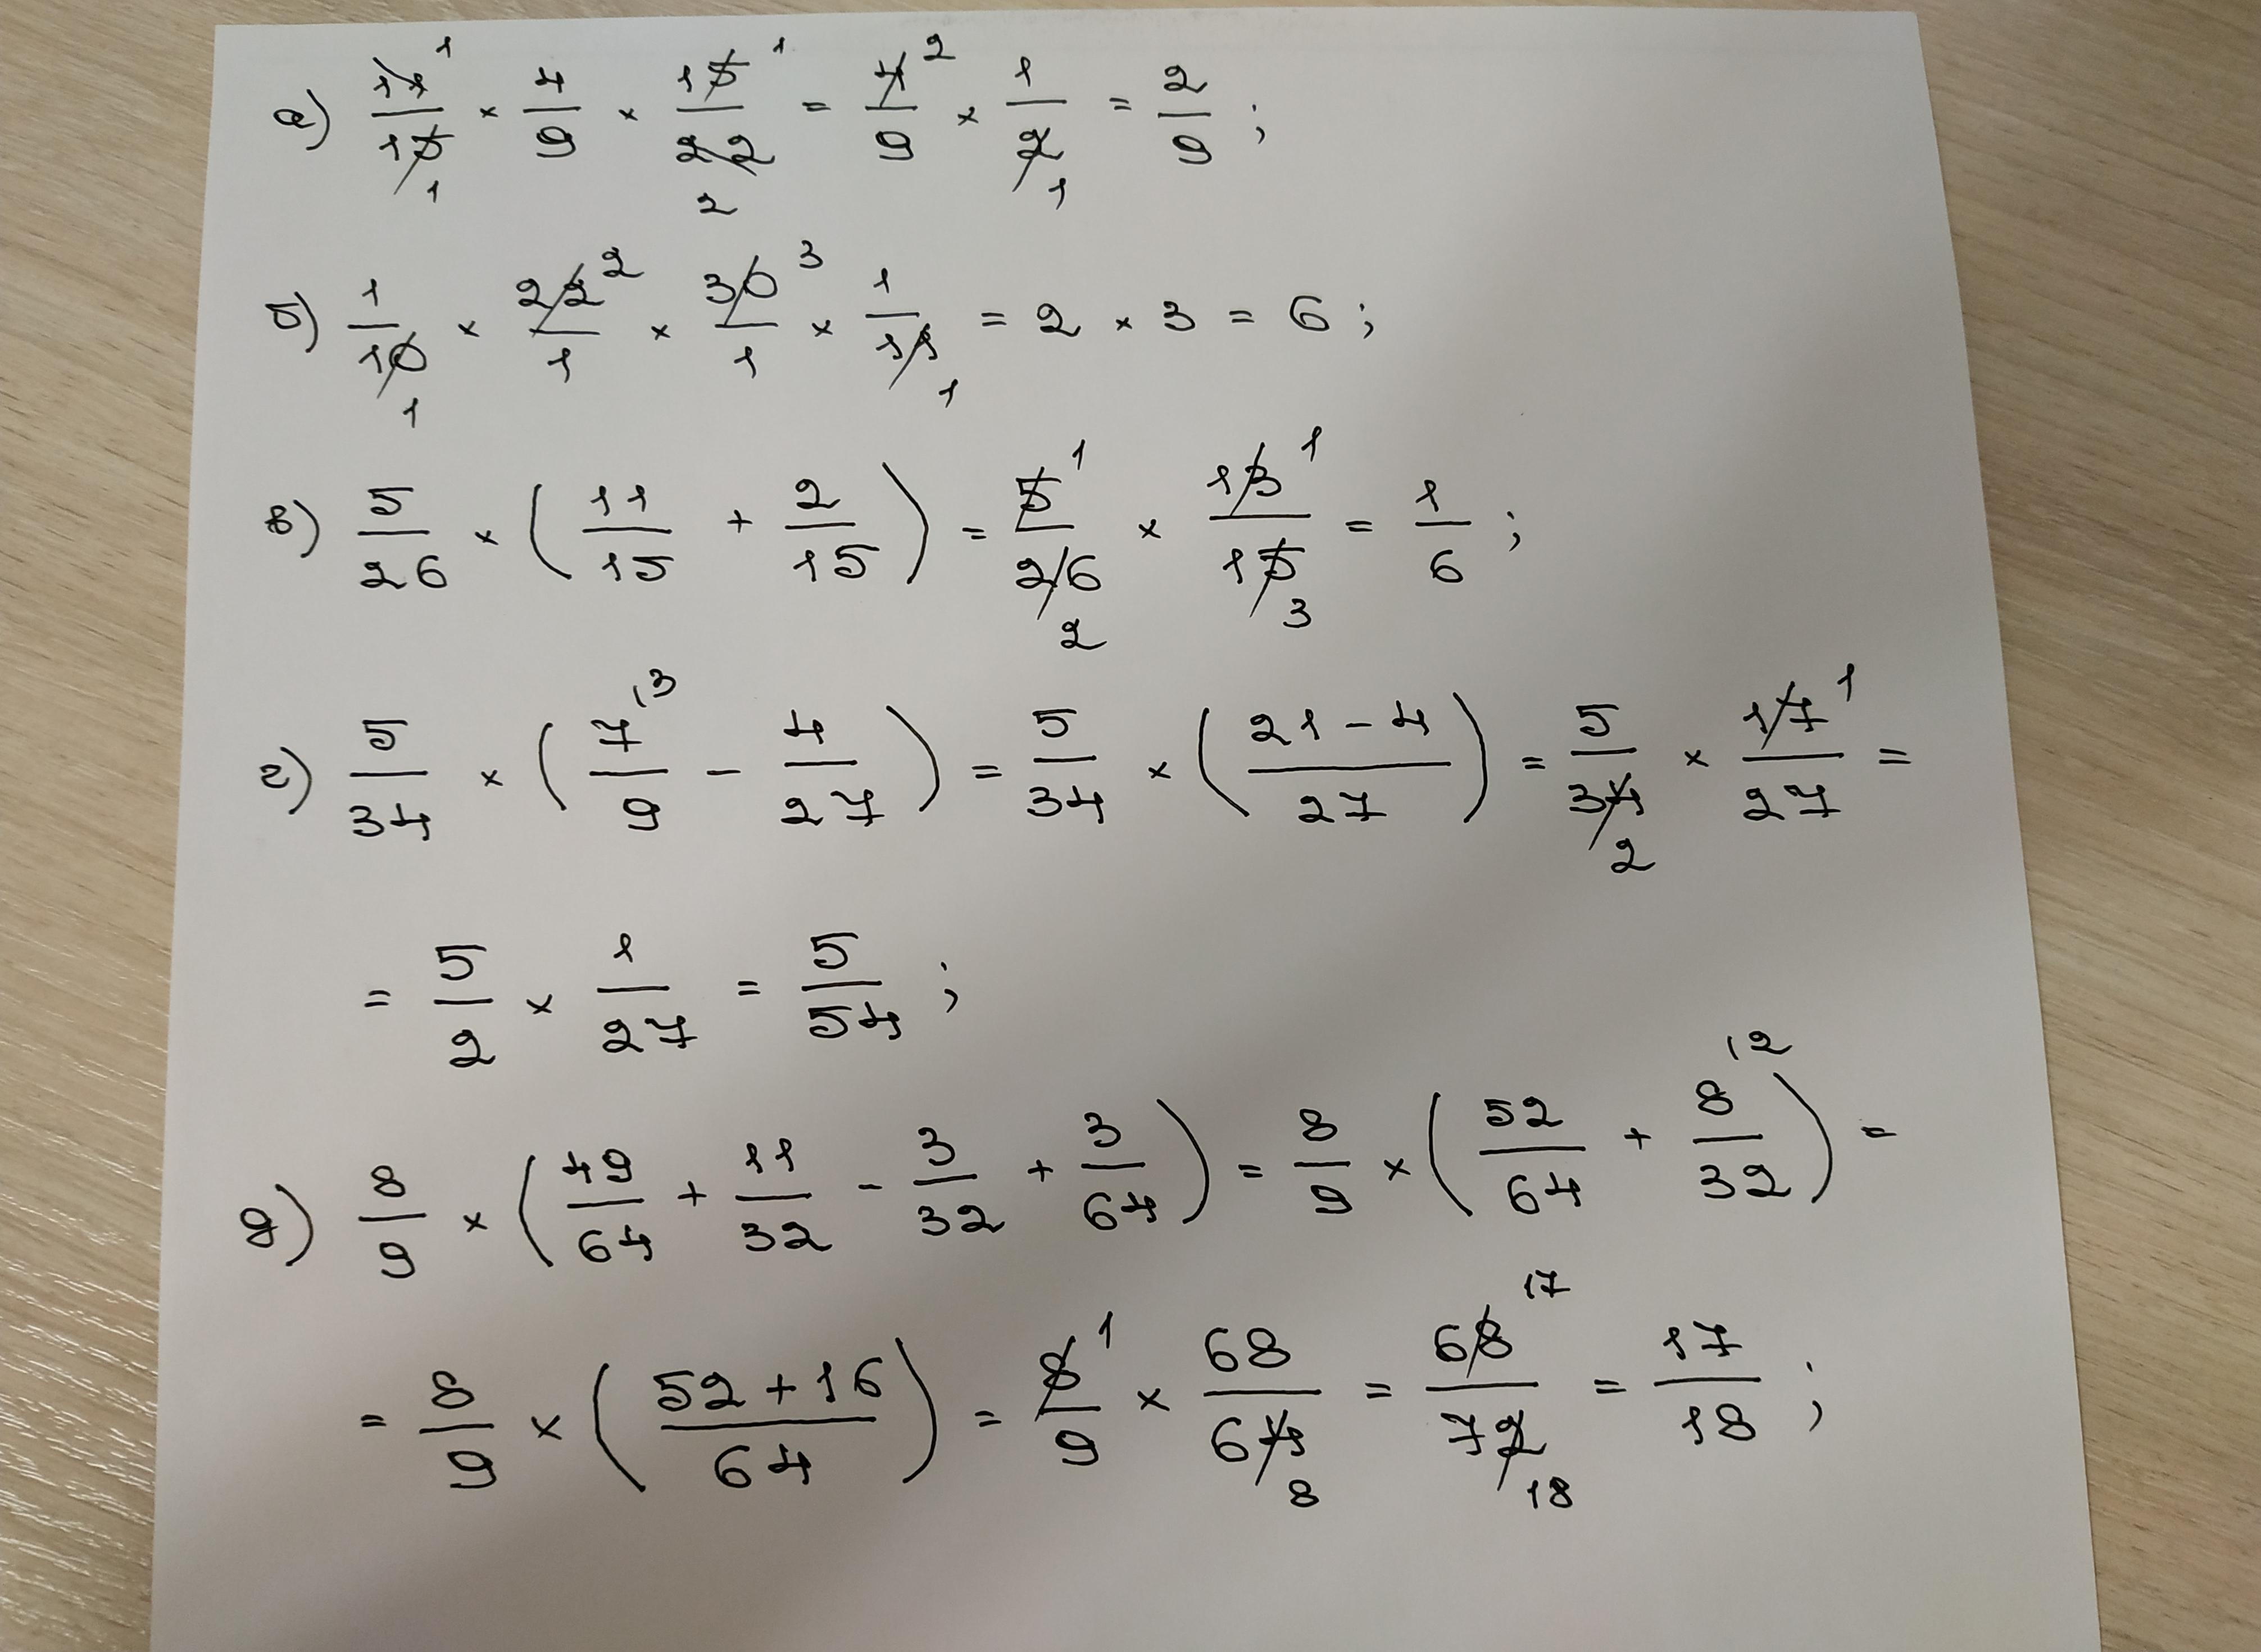 а) 11/15 × 4/9 × 15/22 = 4/9 × 1/2 = 2/9 ;
б) 1/10 × 22/1 × 30/1 × 1/11 = 2 × 3 = 6 ;
в) 5/26 × (11/15 + 2/15) = 5/26 × 13/15 = 1/6 ;
г) 5/34 × (7/9 - 4/27) = 5/34 × (21 - 4)/27 = 5/34 × 17/27 =
= 5/2 × 1/27 = 5/54 ;
д) 8/9 × (49/64 + 11/32 - 3/32 + 3/64) = 8/9 × (52/64 + 8/32) =
= 8/9 × (52 + 16)/64 = 8/9 × 68/64 = 68/72 = 17/18 ;